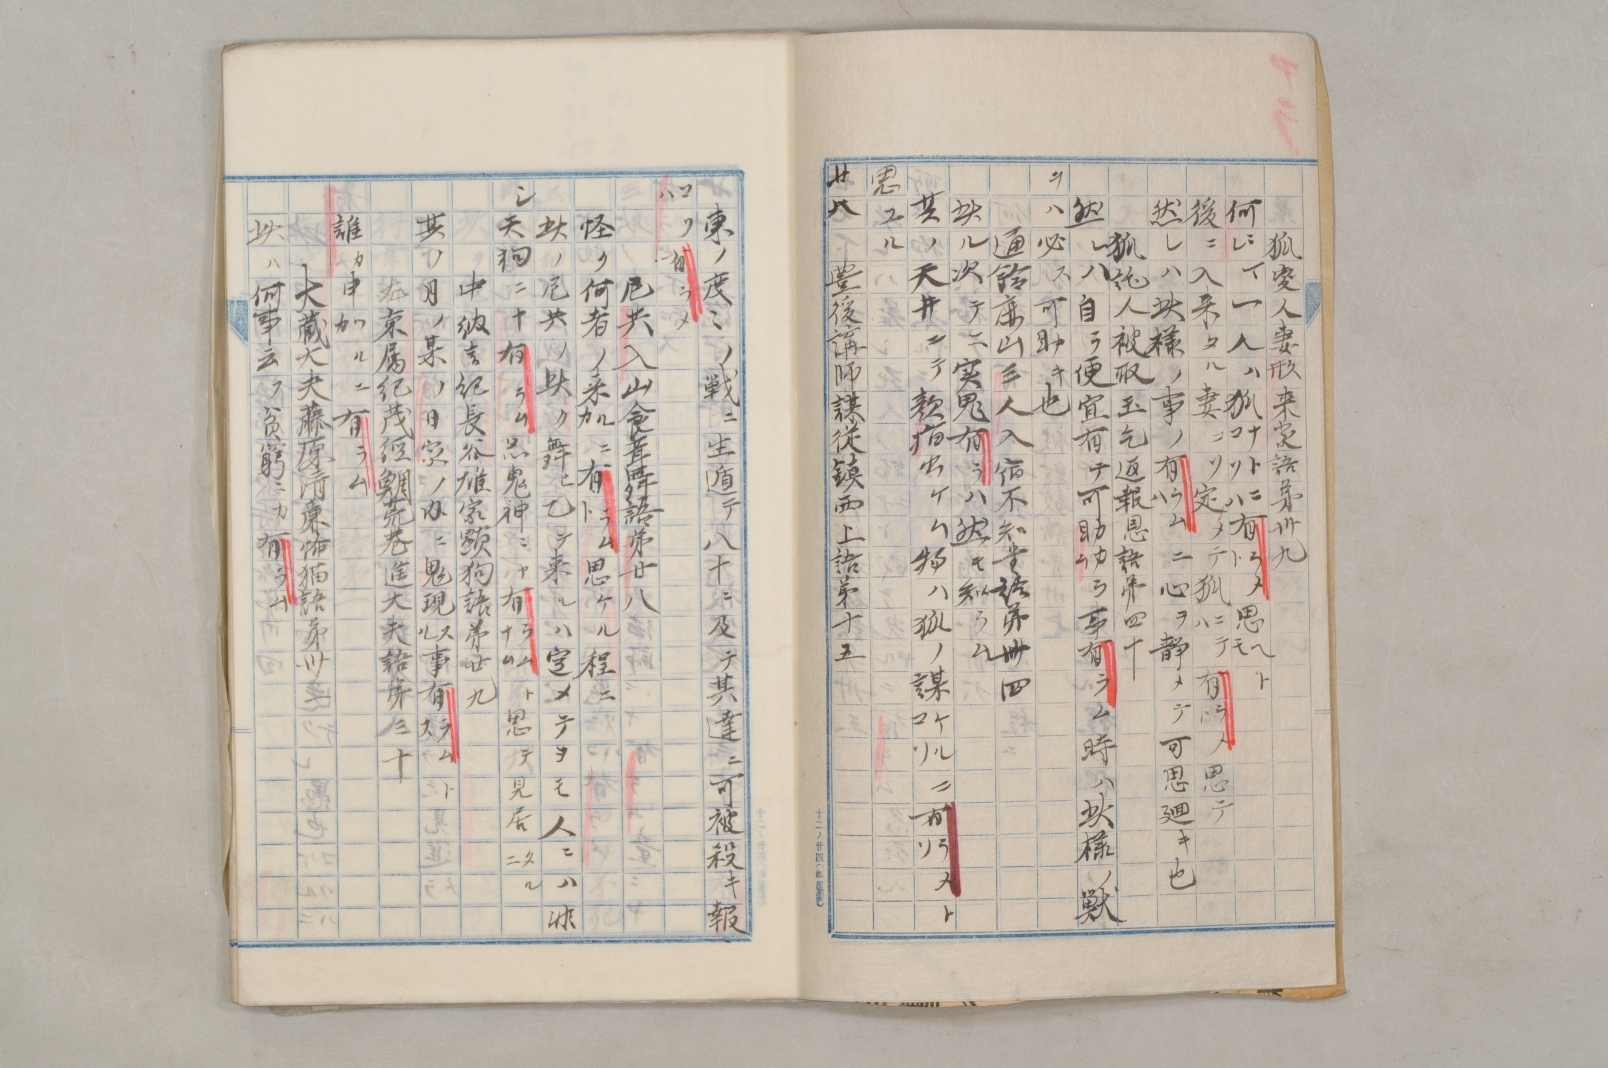 狐変人妻形来家語第卅九
何ニシテ一人ハ狐ナトニコソハ有ラメト思ヘトモ
後ニ入来タル妻コソ定メテ狐ニテハ有ラメト思テ
然レハ此様ノ事ノ有ラムニハ心ヲ静メテ可思廻キ也
狐託人被取玉乞返報恩語第四十
然レハ自ラ便宜有テ可助カラム事有ラム時ハ此様ノ獣
ヲハ必ス可助キ也
通鈴鹿山三人入宿不知堂語第卌四
此ル次テニ実鬼有ラハ然モ知ラム
其ノ天井ニテ顔指出ケム物ハ狐ノ謀ケルニコソ有ラメト
思ユル
廿八 豊後講師謀従鎮西上語第十五
東ノ度ミノ戦ニ生遁テ八十ニ及テ其達ニ可被殺キ報
コソハ有ラメ
尼共入山食茸舞語第廿八
怪ク何者ノ来ルニカ有ラムト思ケル程ニ
此ノ尼共ノ此ク舞ヒ乙テ来ルハ定メテヨモ人ニハ非
シ天狗ニヤ有ラム亦鬼神ニヤ有ラムナムト思テ見居タルニ
中納言紀長谷雄家顕狗語第廿九
其ノ月ノ某ノ日家ノ内ニ鬼現スル事有ラムトス
左京属紀茂経鯛荒巻進大夫語第三十
誰カ申加ルニカ有ラム
大蔵大夫藤原清廉怖猫語第卅一
此ハ何事云フ貧窮ニカ有ラム
十二ノ廿四(松屋製)